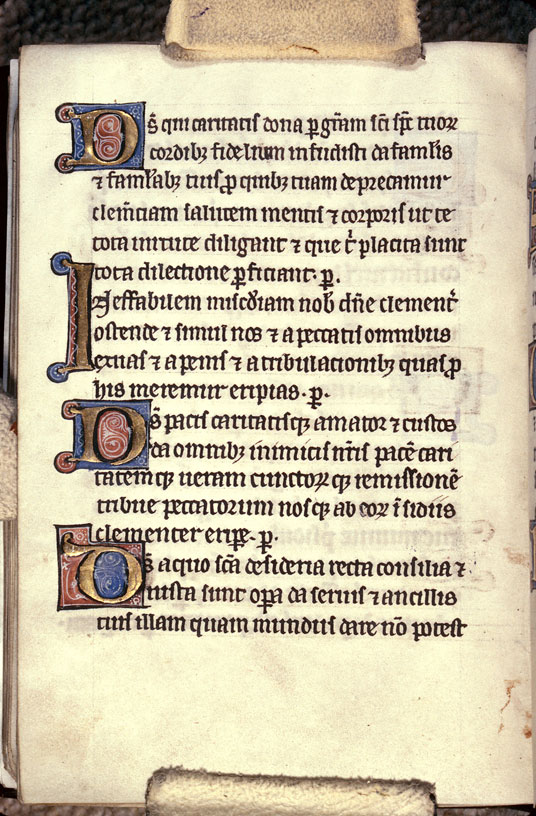 Ds̄ qui caritatis dona ꝑ gr̄am sc̄i sp̄c tuor
cordibꝫ fidelium infudisti da famlis
⁊ famlabꝫ tuis ꝓ quibꝫ tuam deprecamur
clem̄ciam salutem mentis ⁊ corporis ut te
tota uirtute diligant ⁊ que t̄ placita sunt
tota dilectione ꝑficiant. ꝑ.
Ineffabilem mis̄cdiam nob̄ dn̄e clement̄
ostende ⁊ simul nos ⁊ a peccatis omnibus
exuas ⁊ a penis ⁊ a tribulacionibꝫ quas ꝓ
his meremur eripias. ꝑ.
Ds̄ pacis caritatisqꝫ amator ⁊ custos
da omnibꝫ inimicis nr̄is pacē cari
tatemqꝫ ueram cunctoꝝ qꝫ remissionē
tribue peccatorum nosqꝫ ab eor īsidiis
clementer eripe. ꝑ.
Ds̄ a quo sc̄a desideria recta consilia ⁊
iusta sunt oꝑa da seruis ⁊ ancillis
tuis illam quam mundus dare nō potest